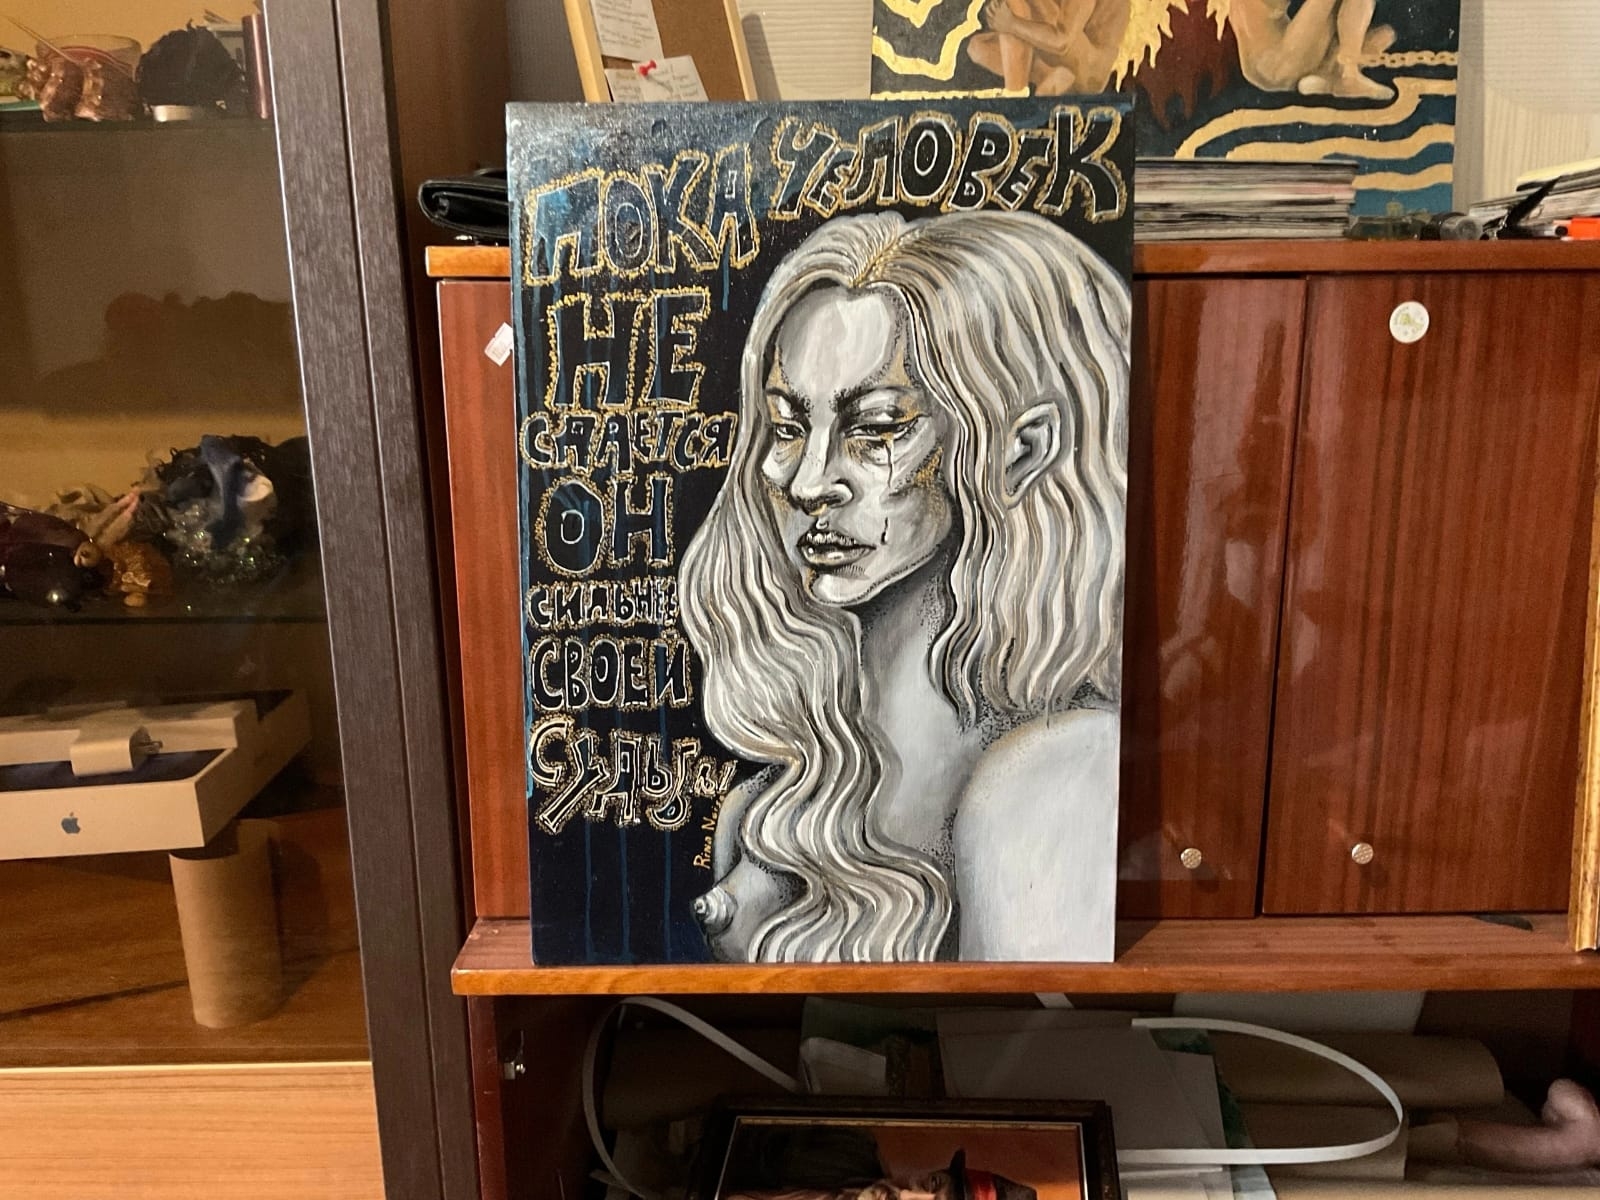 ПОКА ЧЕЛОВЕК
НЕ
СДАЕТСЯ
ОН
СИЛЬНЕЕ
СВОЕЙ
СУДЬБЫ
Rina